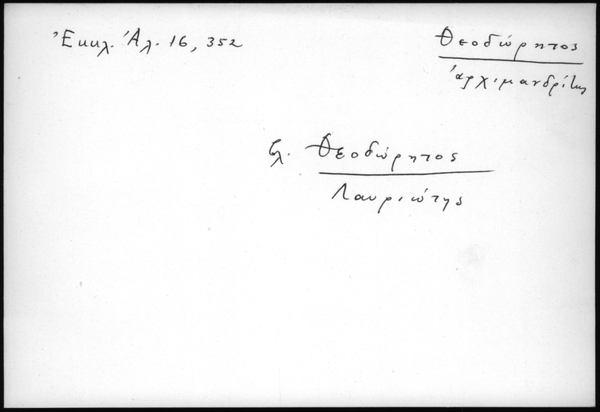 Ἐκκλ. Ἀλ. 16, 352
Θεοδώρητος
ἀρχιμανδρίτης
βλ. Θεοδώρητος
Λαυριώτης